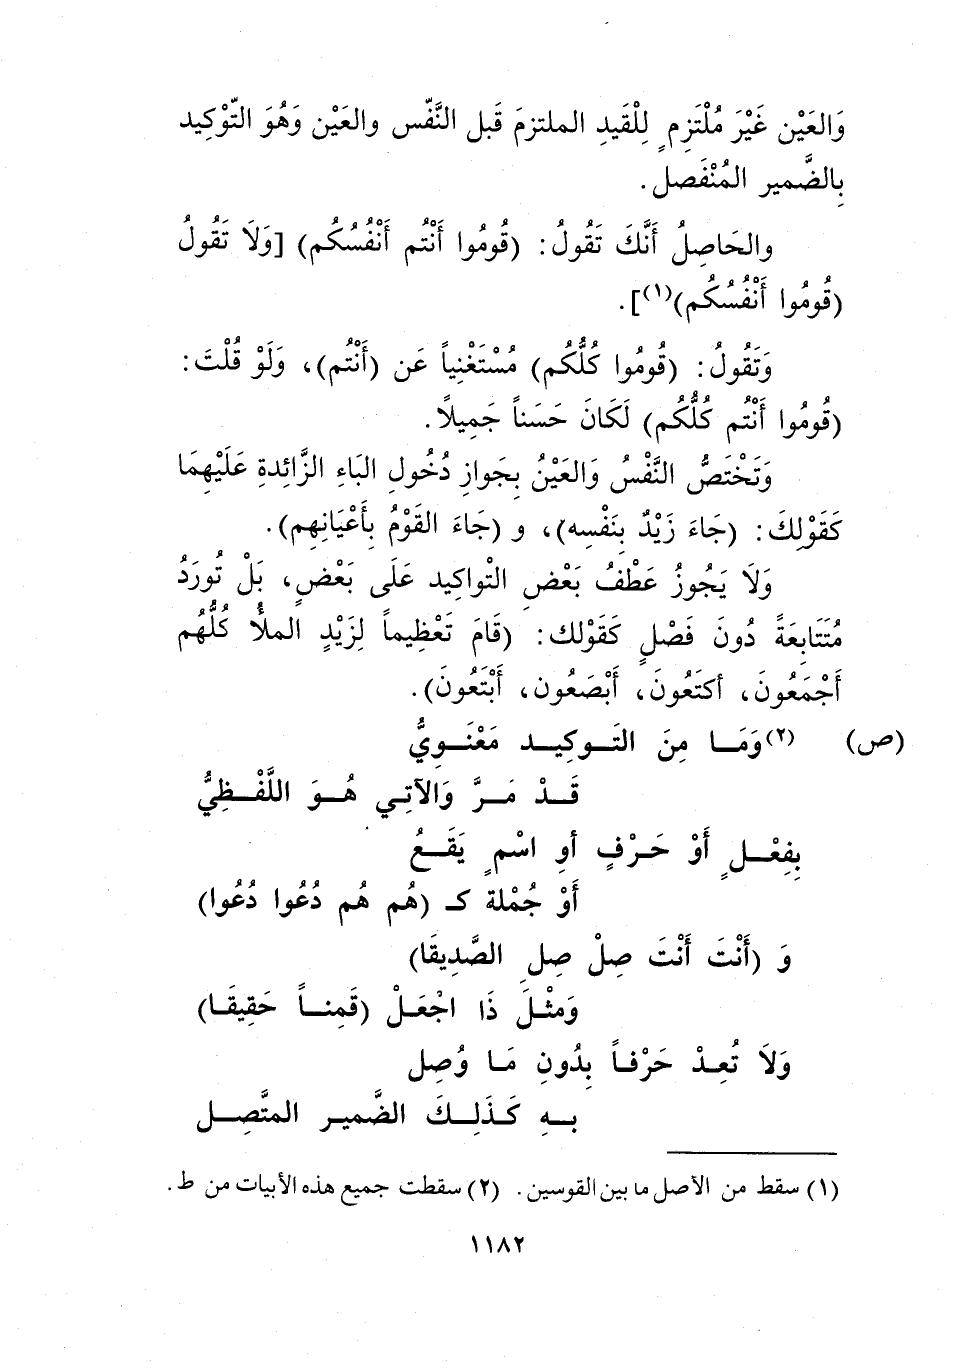 وَالعَيْن غَيْرَ مُلْتَزِمٍ لِلْقَيدِ الملتزمَ قَبل النَّفّس والعَيْن وَهُوَ التّوْكِيد
بالضَّمير المُنْفَصلِ .
والحَاصِلُ أَنَّكَ تَقُولُ : (قُومُوا أَنْتُم أَنْفُسُكُم) [وَلَا تَقُولُ
(قُومُوا أَنْفُسُكُم)(١)] .
وَتَقُولُ : (قُومُوا كُلُّكُم) مُسْتَغْنِياً عَن (أَنْتُم) ، وَلَوْ قُلْتَ :
(قُومُوا أَنْتُم كُلُّكُم) لَكَانَ حَسَناً جَمِيلًا .
وَتَخْتَصُّ النَّفْسُ وَالعَيْنُ بِجَوازِ دُخُولِ البَاءِ الزَّائِدةِ عَلَيْهِمَا
كَقَوْلِكَ : (جَاءَ زَيْدٌ بِنَفْسِه) ، و (جَاءَ القَوْمُ بِأَعْيَانِهِم) .
وَلَا يَجُوزُ عَطْفُ بَعْضِ التْواكِيد عَلَى بَعْضٍ ، بَلْ تُورَدُ
مُتَتَابِعَةً دُونَ فَصْلٍ كَقَوْلك : (قَامَ تَعْظِيماً لِزَيْدٍ الملأُ كُلُّهُم
أَجْمَعُونَ ، أكتَعُونَ ، أَبْصَعُون ، أَبْتَعُونَ) .
(ص) (٢)وَمَـا مِنَ التَـوكِيـد مَعْنَـوِيُّ
قَـدْ مَـرَّ وَالآتِـي هُـوَ اللَّفْـظِيُّ
بِفِعْـلٍ أَوْ حَـرْفٍ أوِ اسْمٍ يَقَـعُ
أَوْ جُمْلة كـ (هُم هُم دُعُوا دُعُوا)
وَ (أَنْتَ أَنْتَ صِلْ صِلِ الصَّدِيقَا)
وَمثْـلَ ذَا اجْعَـلْ (قَمِنـاً حَقِيقَـا)
وَلَا تُعِـدْ حَرْفـاً بِدُونِ مَـا وُصِل
بِـهِ كَـذَلِـكَ الضَّميـر المتَّصِـل
(١) سقط من الأصل ما بين القوسين . (٢) سقطت جميع هذه الأبيات من ط .
١١٨٢